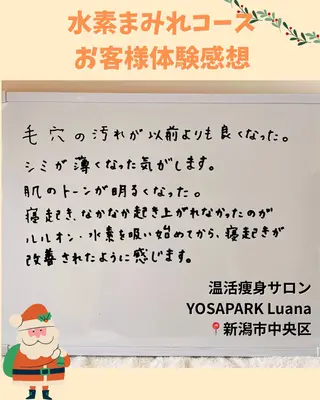 水素まみれコース
お客様体験感想
毛穴の汚れが以前よりも良くなった。
シミが薄くなった気がします。
肌のトーンが明るくなった。
寝起き、なかなか起き上がれなかったのが
ルルオン・水素を吸い始めてから、寝起きが
改善されたように感じます。
温活痩身サロン
YOSAPARK Luana
📍新潟市中央区